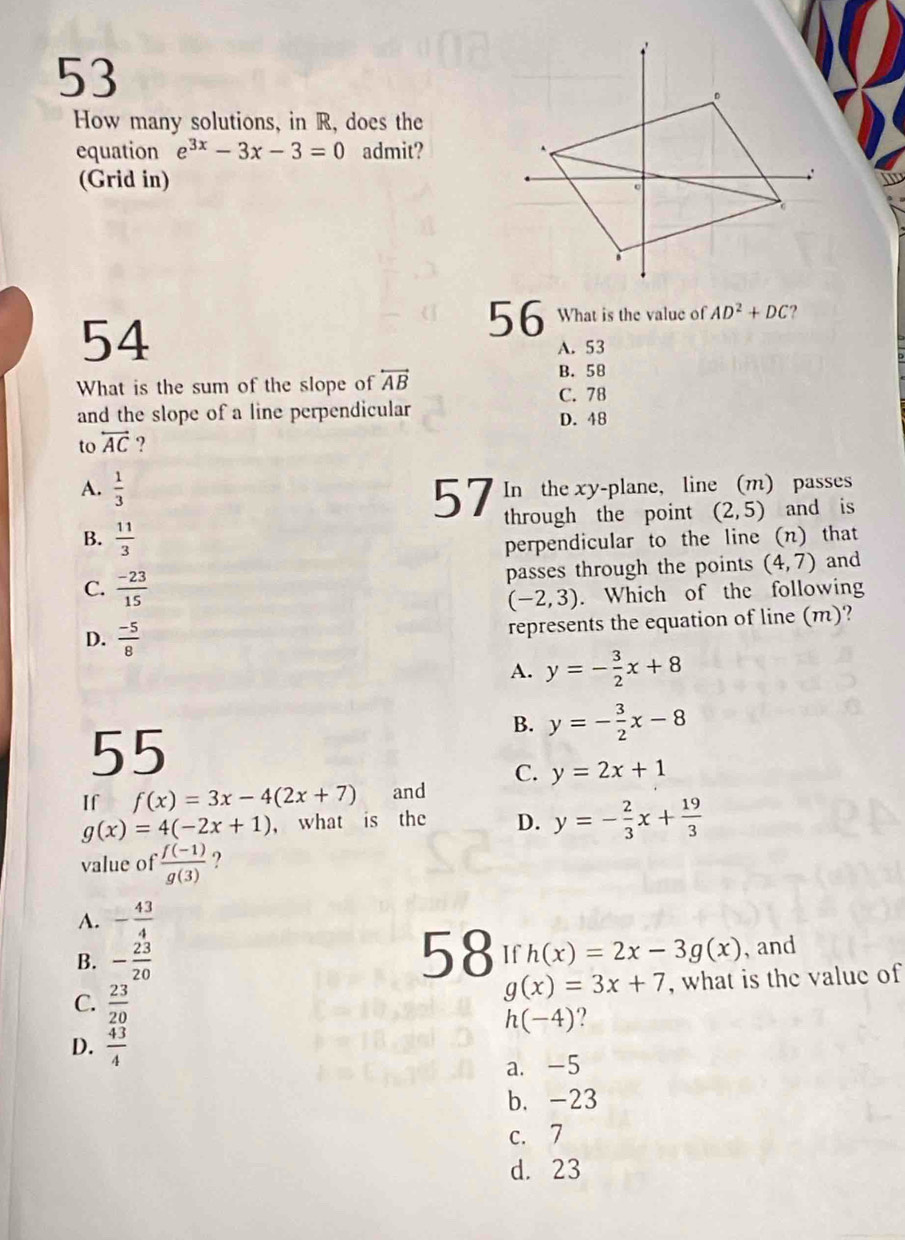 53
How many solutions, in ℝ, does the
equation e^{3x} − 3x − 3 = 0 admit?
(Grid in)
54
What is the sum of the slope of \overleftrightarrow{AB}
and the slope of a line perpendicular
to \overleftrightarrow{AC} ?
A. \frac{1}{3}
B. \frac{11}{3}
C. \frac{-23}{15}
D. \frac{-5}{8}
55
If f(x) = 3x − 4(2x + 7) and
g(x) = 4(−2x + 1), what is the
value of \frac{f(-1)}{g(3)} ?
A. −\frac{43}{4}
B. −\frac{23}{20}
C. \frac{23}{20}
D. \frac{43}{4}
D
A
O
C
B
56 What is the value of AD² + DC?
A. 53
B. 58
C. 78
D. 48
57 In the xy-plane, line (m) passes
through the point (2,5) and is
perpendicular to the line (n) that
passes through the points (4,7) and
(−2,3). Which of the following
represents the equation of line (m)?
A. y = −\frac{3}{2}x + 8
B. y = −\frac{3}{2}x − 8
C. y = 2x + 1
D. y = −\frac{2}{3}x + \frac{19}{3}
58 If h(x) = 2x − 3g(x), and
g(x) = 3x + 7, what is the value of
h(−4)?
a. −5
b. −23
c. 7
d. 23